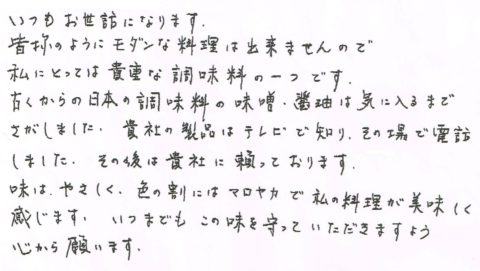 いつもお世話になります.
皆様のようにモダンな料理は出来ませんので
私にとっては貴重な調味料の一つです.
古くからの日本の調味料の味噌・醤油は気に入るまで
さがしました. 貴社の製品はテレビで知り、その場で電話
しました. その後は貴社に頼っております.
味は、やさしく、色の割にはマロヤカで私の料理が美味しく
感じます. いつまでもこの味を守っていただきますよう
心から願います.